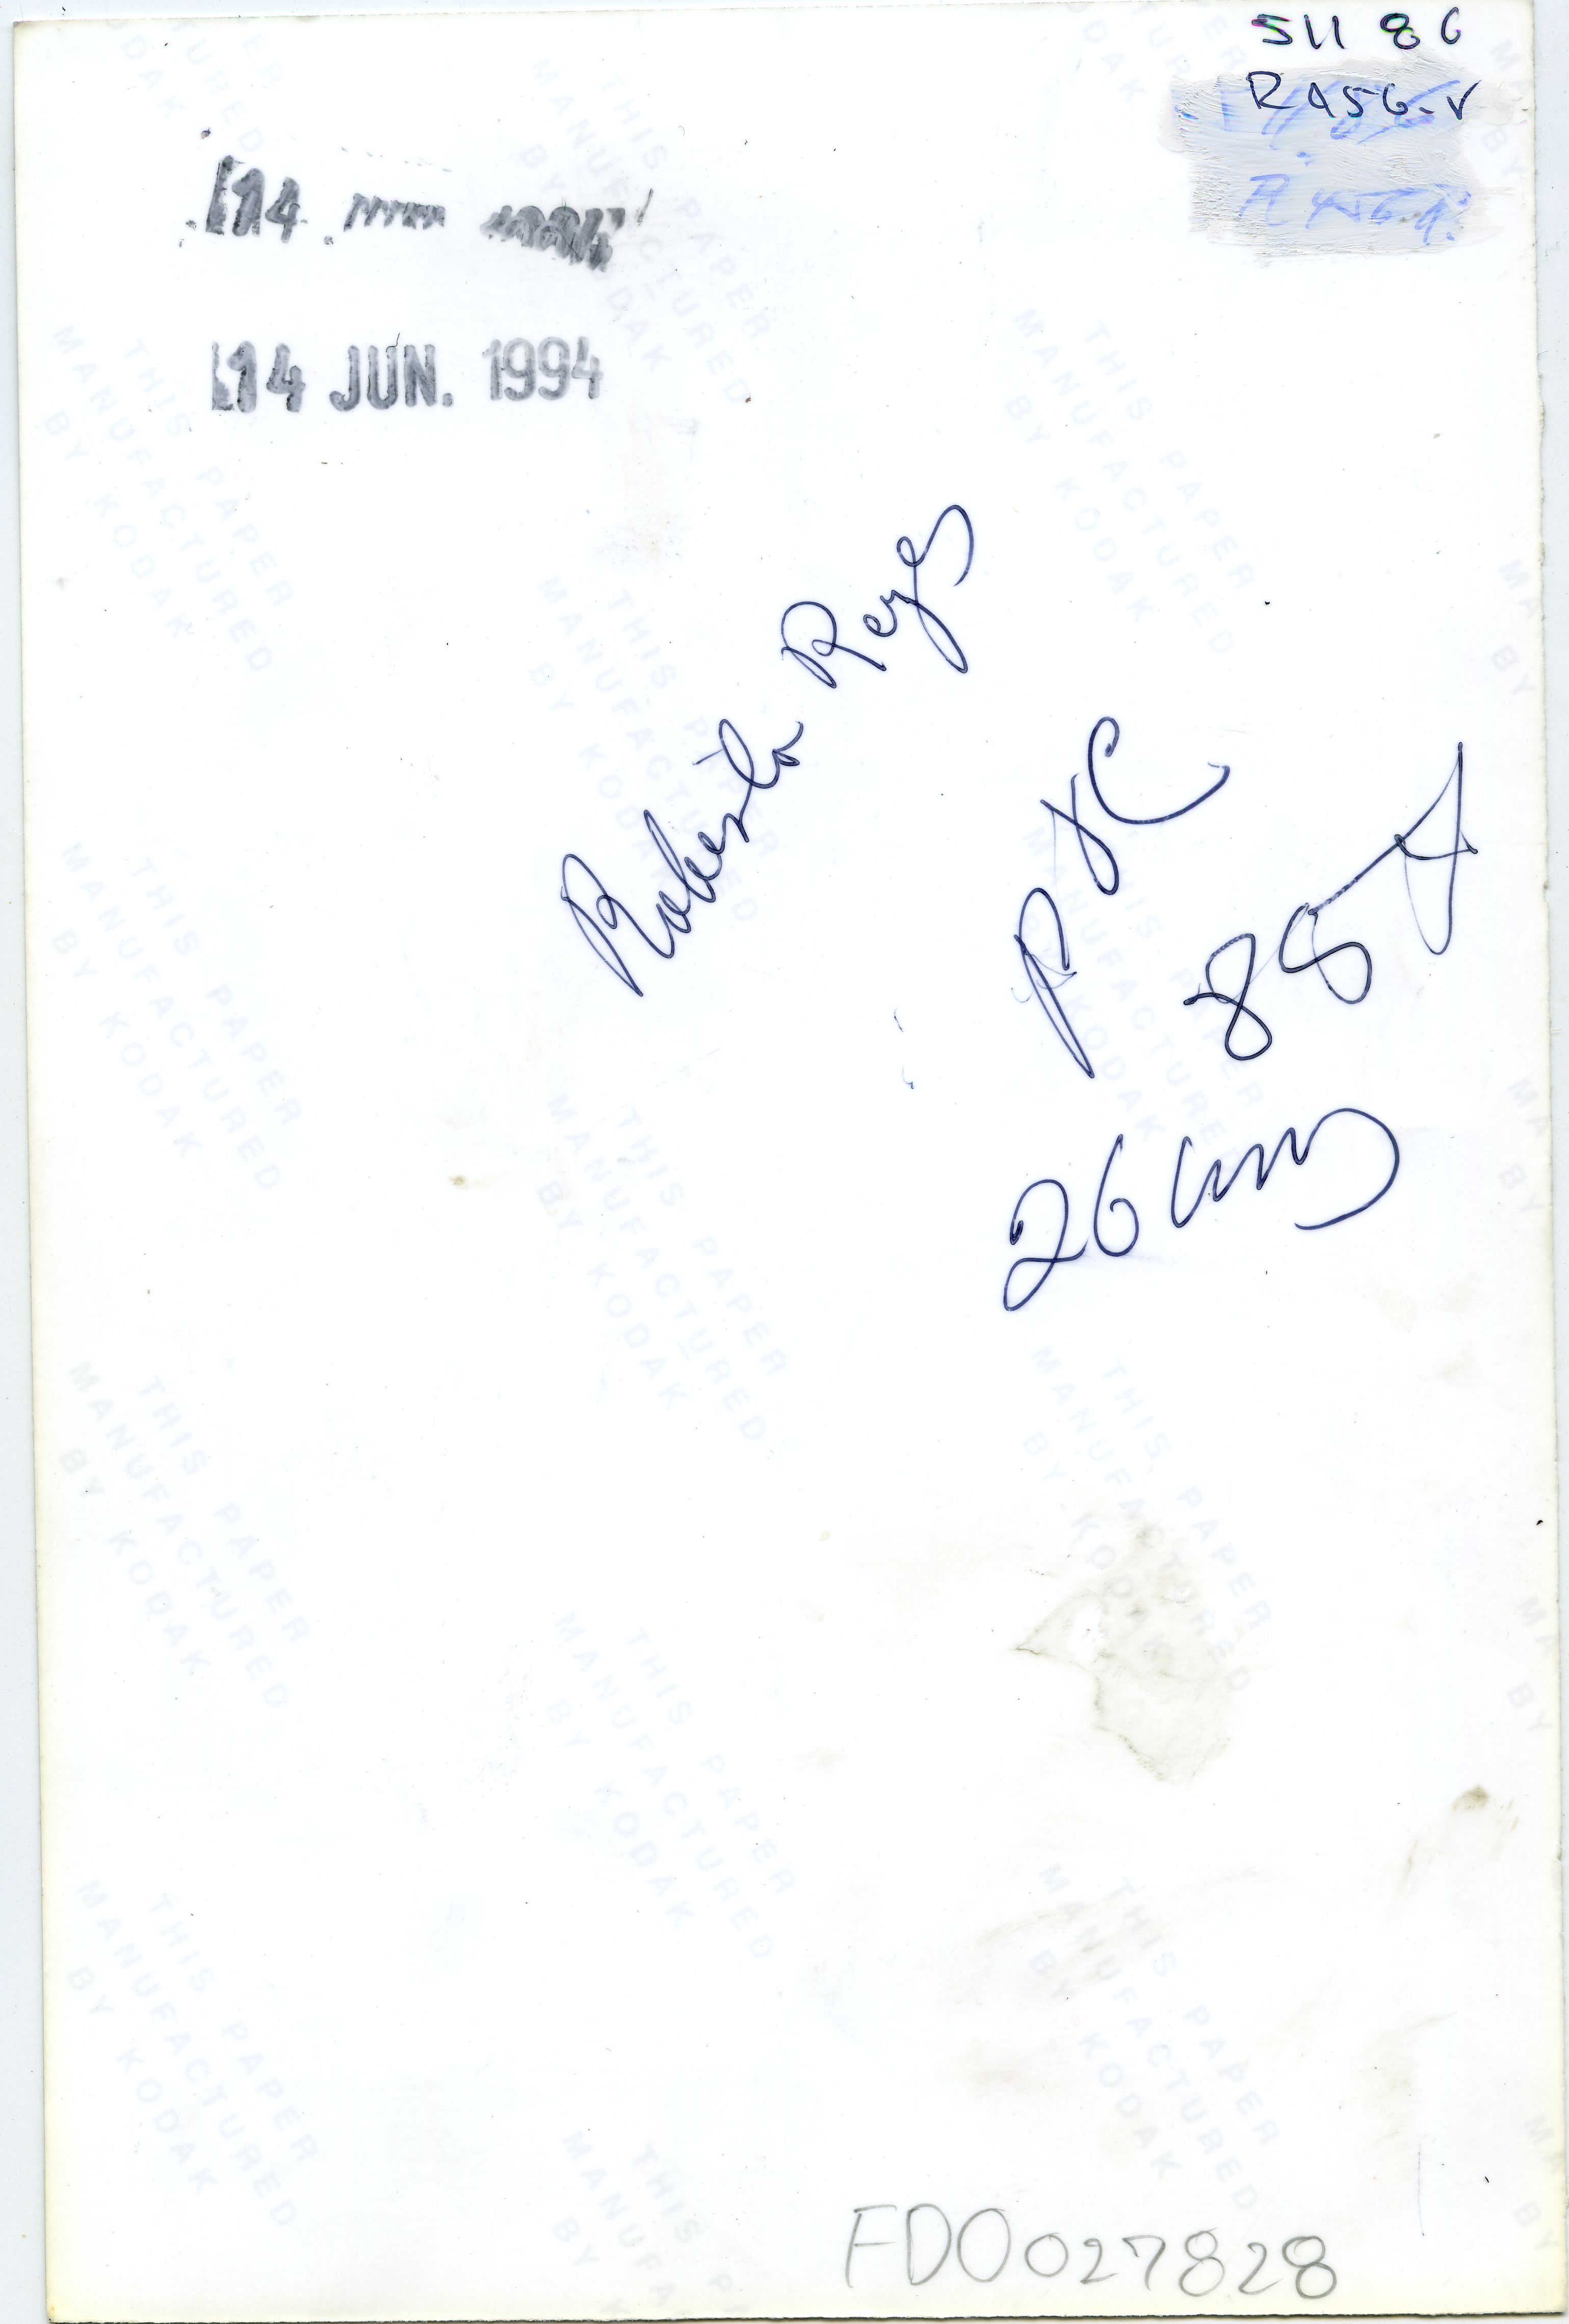 511 86
R456-V
14
14 JUN. 1994
Roberto Reyes
P y C
85%
26 cms
FDO027828
THIS PAPER
MANUFACTURED
BY KODAK